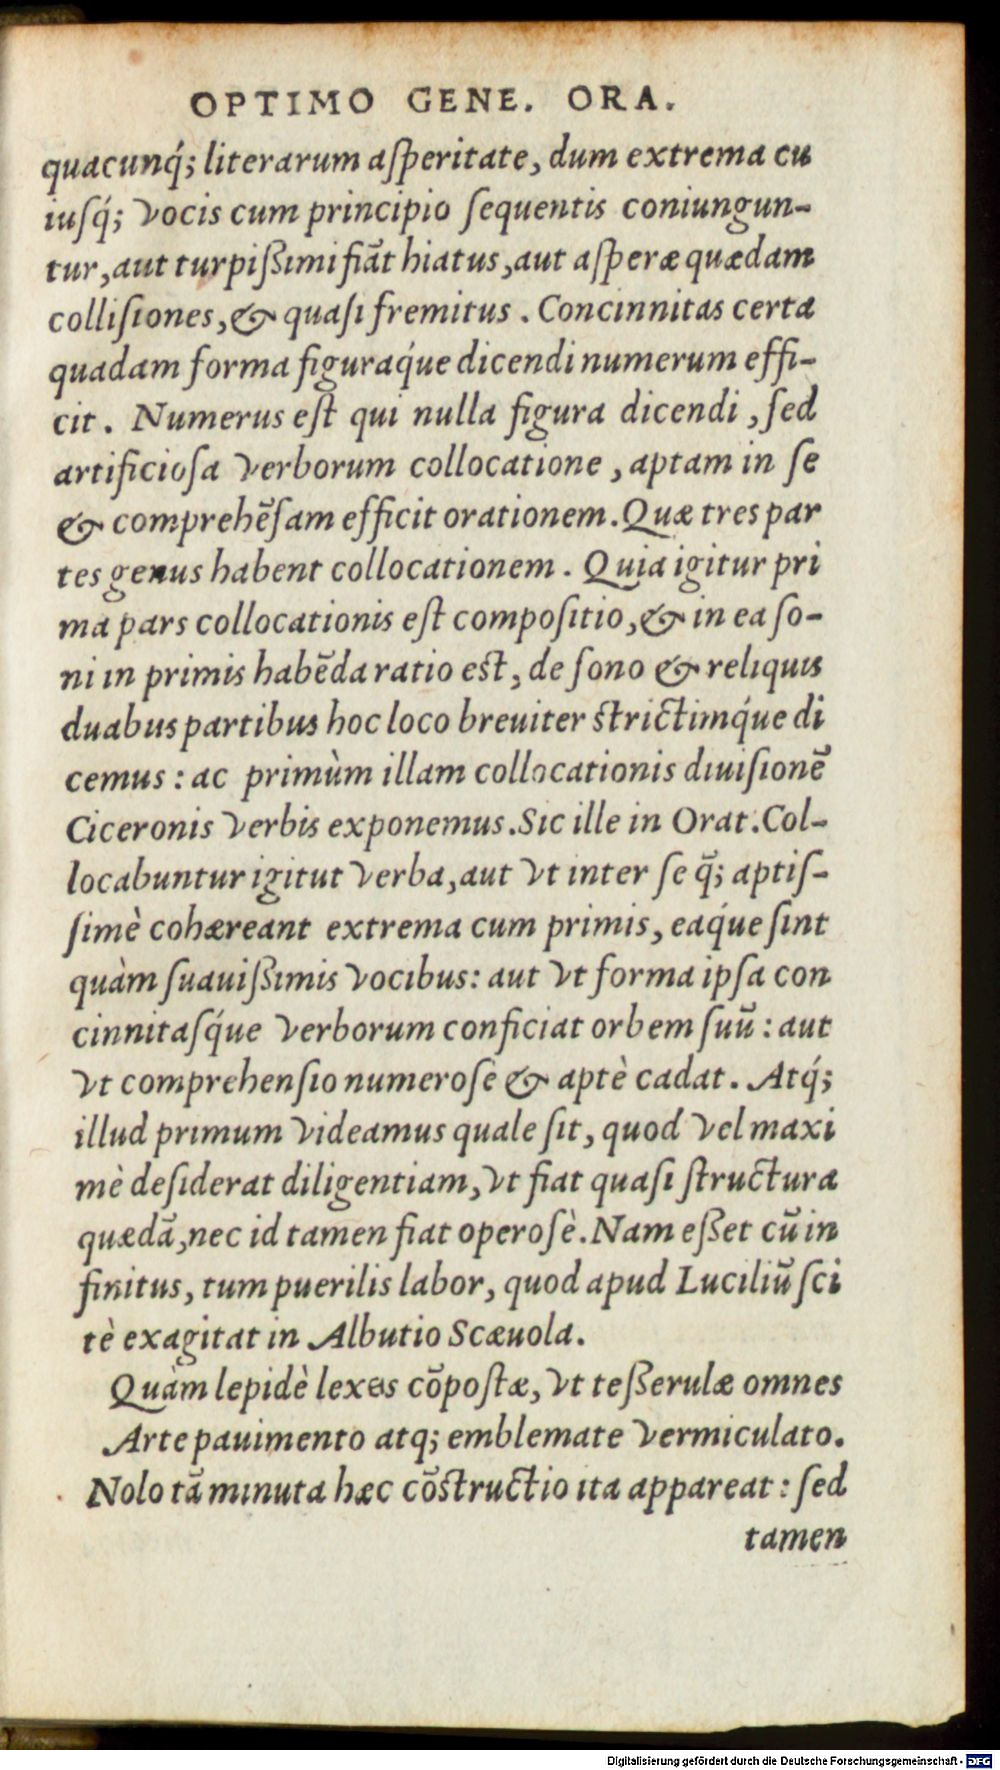 OPTIMO GENE. ORA.
quacunq́; literarum aſperitate, dum extrema cu
iuſq́; vocis cum principio ſequentis coniungun-
tur, aut turpißimi fiãt hiatus, aut aſperæ quædam
colliſiones, & quaſi fremitus. Concinnitas certa
quadam forma figuraq́ue dicendi numerum effi-
cit. Numerus eſt qui nulla figura dicendi, ſed
artificioſa verborum collocatione, aptam in ſe
& comprehẽſam efficit orationem. Quæ tres par
tes genus habent collocationem. Quia igitur pri
ma pars collocationis eſt compoſitio, & in ea ſo-
ni in primis habẽda ratio est, de ſono & reliquis
duabus partibus hoc loco breuiter strictimq́ue di
cemus: ac primùm illam collocationis diuiſionẽ
Ciceronis verbis exponemus. Sic ille in Orat. Col-
locabuntur igitut verba, aut vt inter ſe q̃; aptiſ-
ſimè cohæreant extrema cum primis, eaq́ue ſint
quàm ſuauißimis vocibus: aut vt forma ipſa con
cinnitaſq́ue verborum conficiat orbem ſuũ: aut
vt comprehenſio numeroſè & aptè cadat. Atq́;
illud primum videamus quale ſit, quod vel maxi
mè deſiderat diligentiam, vt fiat quaſi ſtructura
quædã, nec id tamen fiat operoſè. Nam eßet cũ in
finitus, tum puerilis labor, quod apud Luciliũ ſci
tè exagitat in Albutio Scæuola.
Quàm lepidè lexes cõpoſtæ, vt teßerulæ omnes
Arte pauimento atq; emblemate vermiculato.
Nolo tã minuta hæc cõstructio ita appareat: ſed
tamen
Digitalisierung gefördert durch die Deutsche Forschungsgemeinschaft - DFG